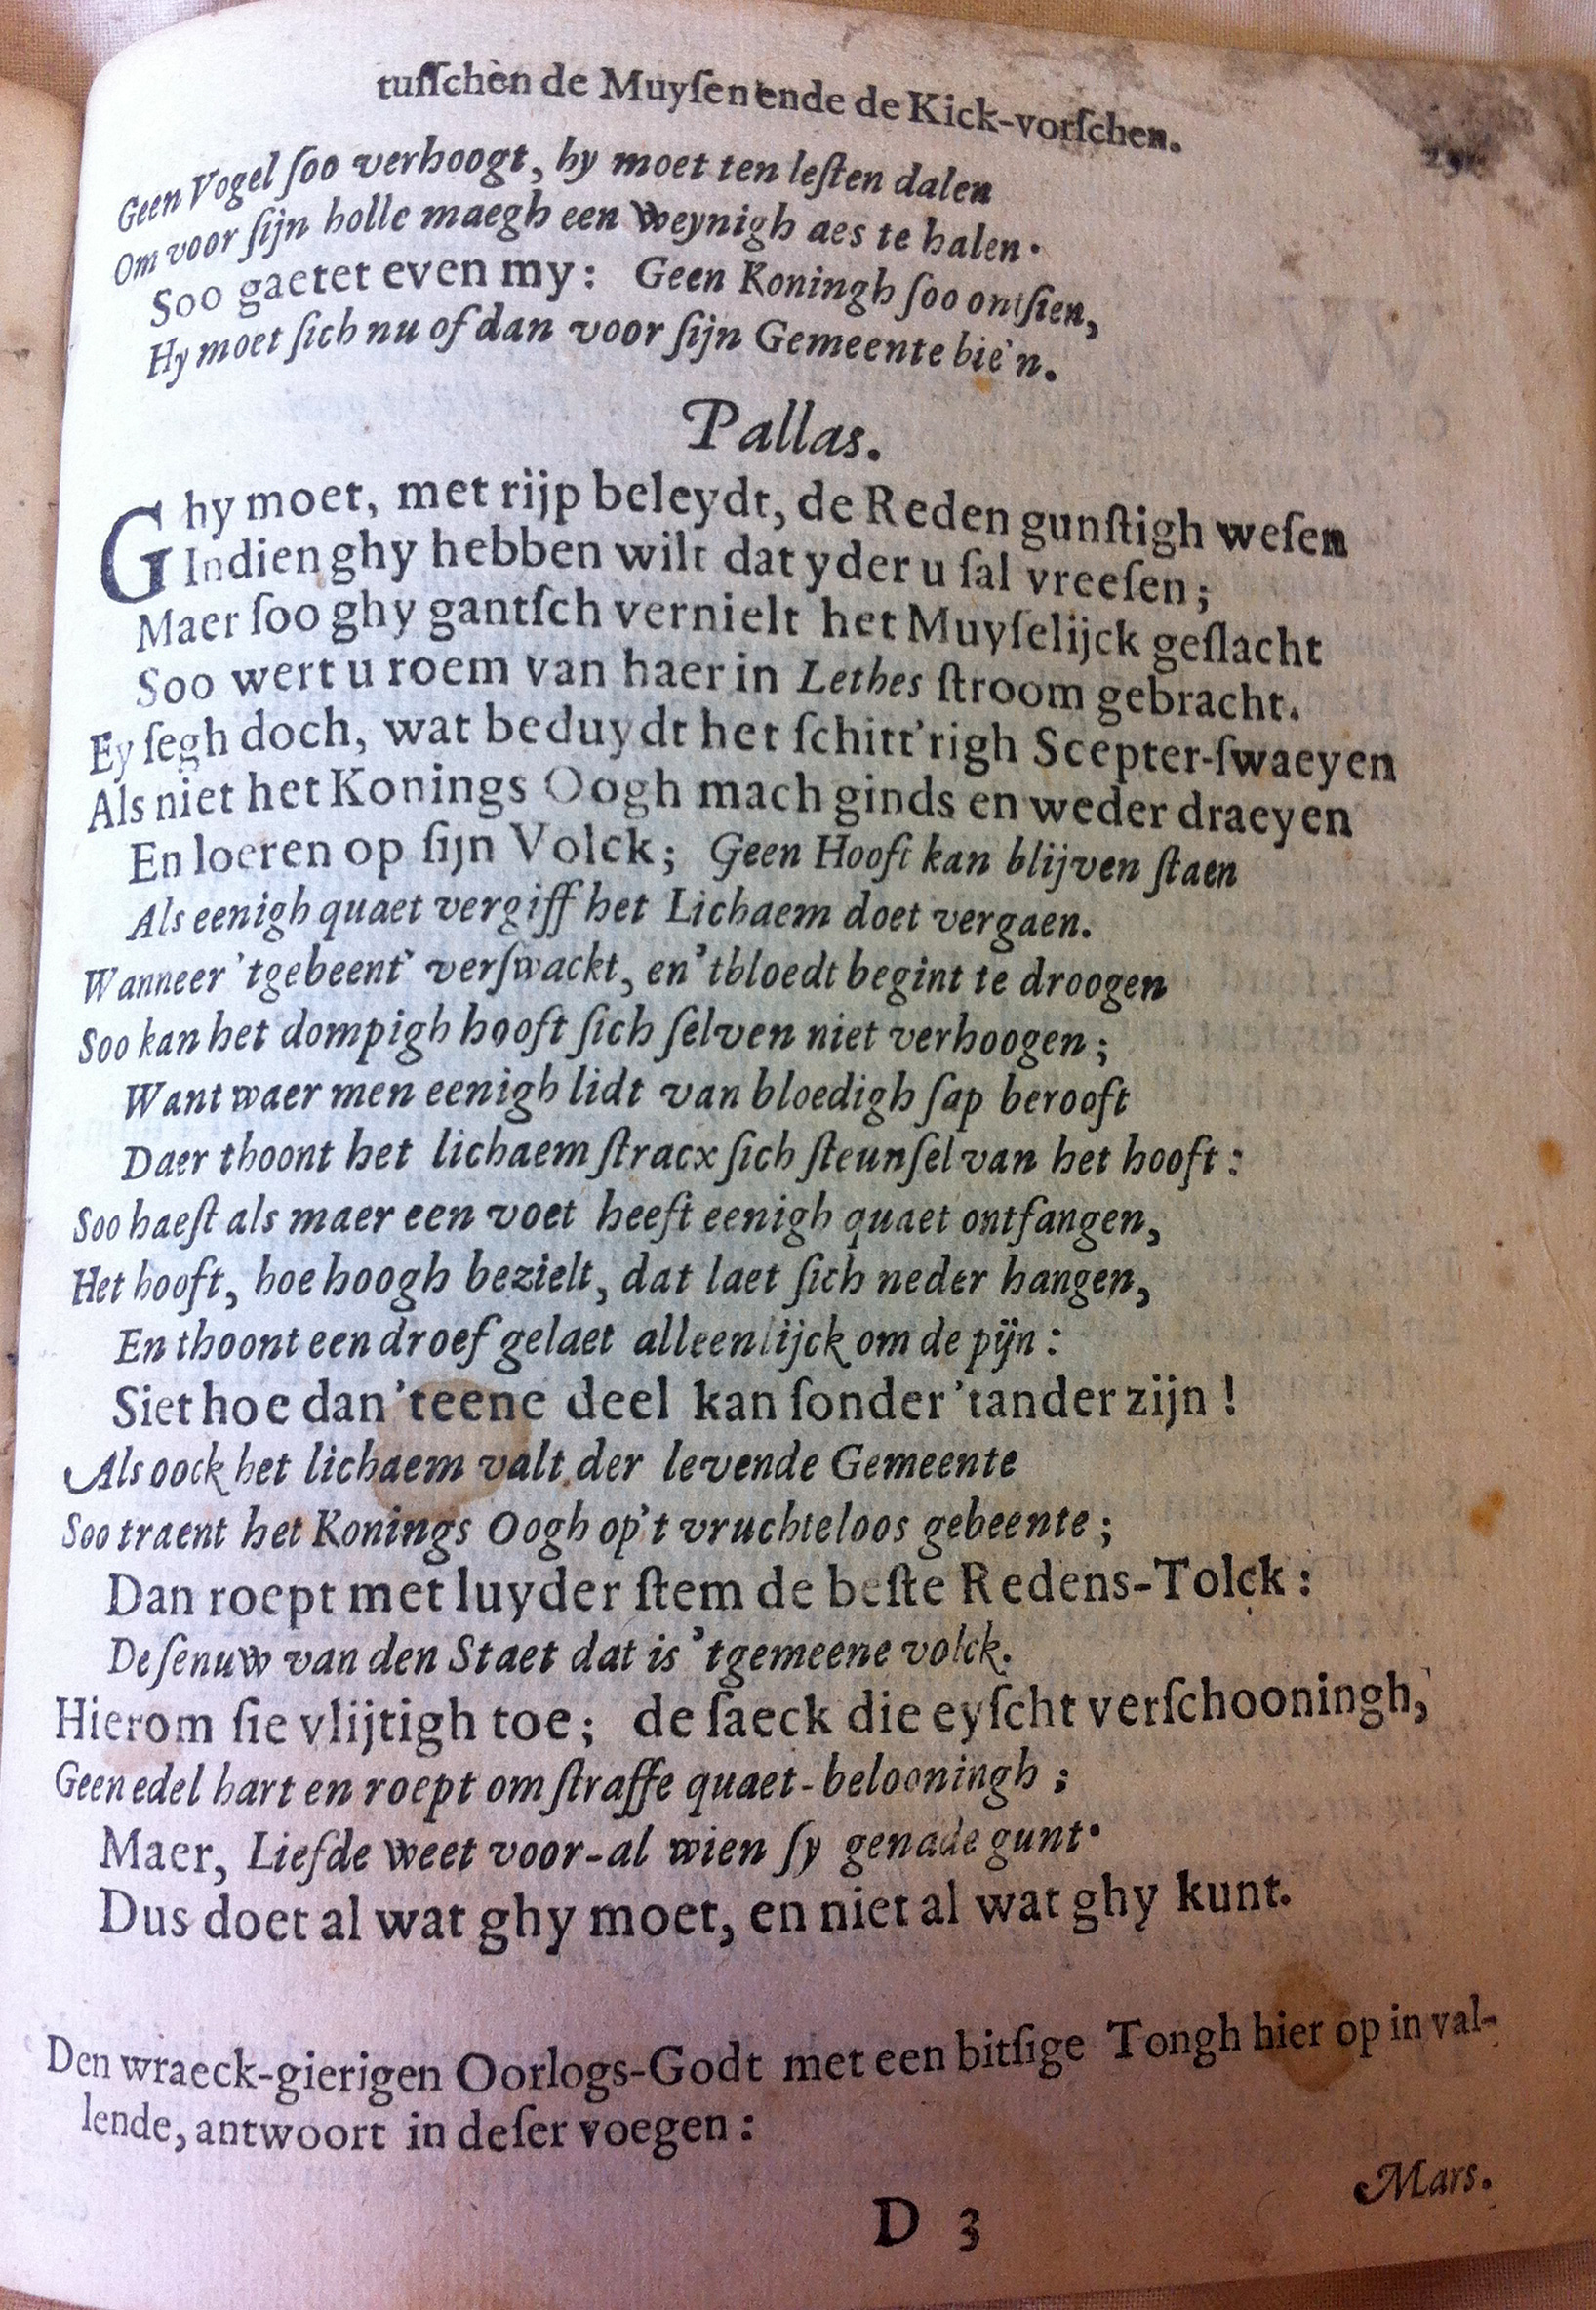 tuſſchen de Muyſen ende de Kick-vorſchen.
Geen Vogel ſoo verhoogt, hy moet ten leſten dalen
Om voor ſijn holle maegh een weynigh aes te halen.
Soo gaetet even my: Geen Koningh ſoo ontſien,
Hy moet ſich nu of dan voor ſijn Gemeente bie'n.
Pallas.
Ghy moet, met rijp beleydt, de Reden gunſtigh weſen
Indien ghy hebben wilt dat yder u ſal vreeſen;
Maer ſoo ghy gantſch vernielt het Muyſelijck geſlacht
Soo wert u roem van haer in Lethes ſtroom gebracht.
Ey ſegh doch, wat beduydt het ſchitt'righ Scepter-ſwaeyen
Als niet het Konings Oogh mach ginds en weder draeyen
En loeren op ſijn Volck; Geen Hooft kan blijven ſtaen
Als eenigh quaet vergiff het Lichaem doet vergaen.
Wanneer 'tgebeent' verſwackt, en 'tbloedt begint te droogen
Soo kan het dompigh hooft ſich ſelven niet verhoogen;
Want waer men eenigh lidt van bloedigh ſap berooft
Daer thoont het lichaem ſtracx ſich ſteunſel van het hooft:
Soo haeſt als maer een voet heeft eenigh quaet ontfangen,
Het hooft, hoe hoogh bezielt, dat laet ſich neder hangen,
En thoont een droef gelaet alleenlijck om de pijn:
Siet hoe dan 'teene deel kan ſonder 'tander zijn!
Als oock het lichaem valt der levende Gemeente
Soo traent het Konings Oogh op't vruchteloos gebeente;
Dan roept met luyder ſtem de beſte Redens-Tolck:
De ſenuw van den Staet dat is 'tgemeene volck.
Hierom ſie vlijtigh toe; de ſaeck die eyſcht verſchooningh,
Geen edel hart en roept om ſtraffe quaet-belooningh:
Maer, Liefde weet voor-al wien ſy genade gunt.
Dus doet al wat ghy moet, en niet al wat ghy kunt.
Den wraeck-gierigen Oorlogs-Godt met een bitſige Tongh hier op in val-
lende, antwoort in deſer voegen:
Mars.
D 3